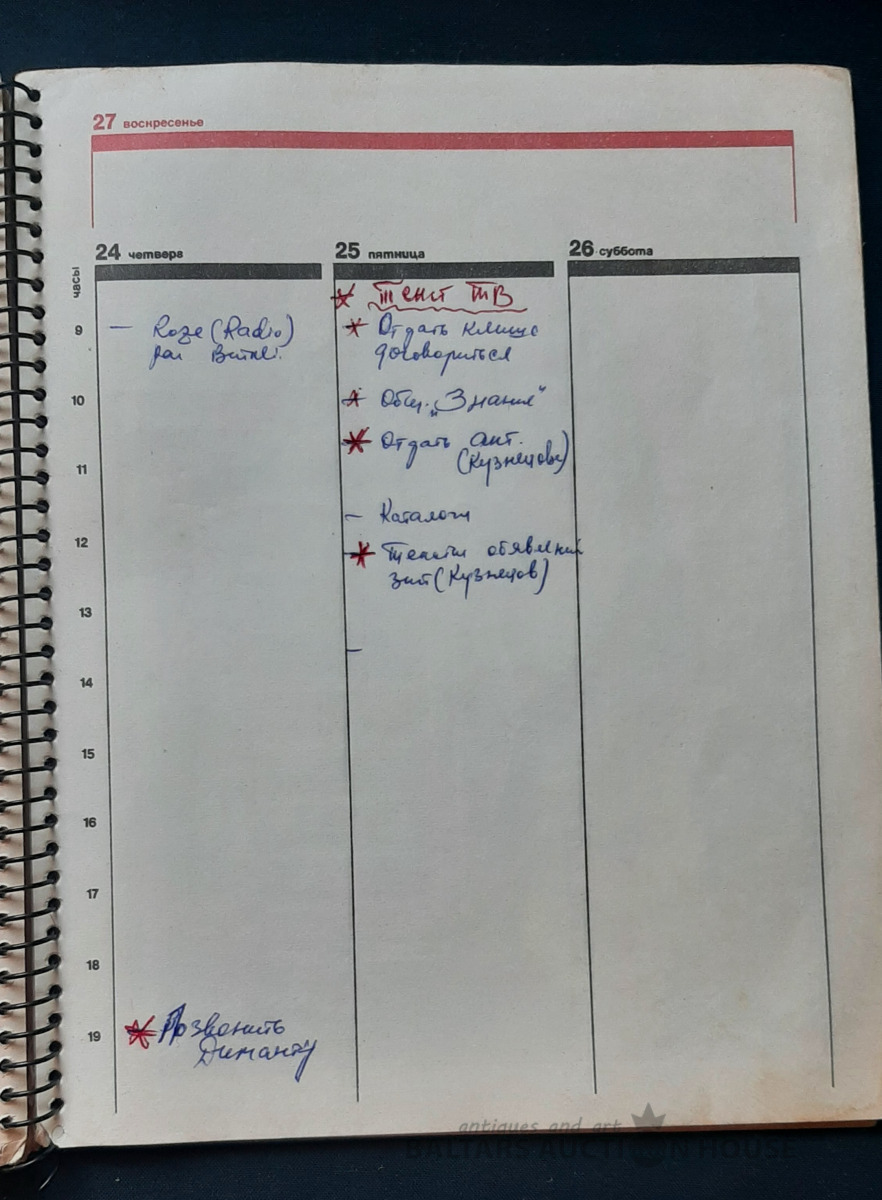 27 воскресенье
24 четверг
25 пятница
26 суббота
часы
9
10
11
12
13
14
15
16
17
18
19
— Roze (Radio)
par
* Позвонить
Диманту
* Текст ТВ
* Отдать клише
договориться
* Общ. „Знания"
* Отдать
(Кузнецов)
— Каталоги
* Тексты обявлений
(Кузнецов)
—
antiques and art
BALTARS AUCTION HOUSE